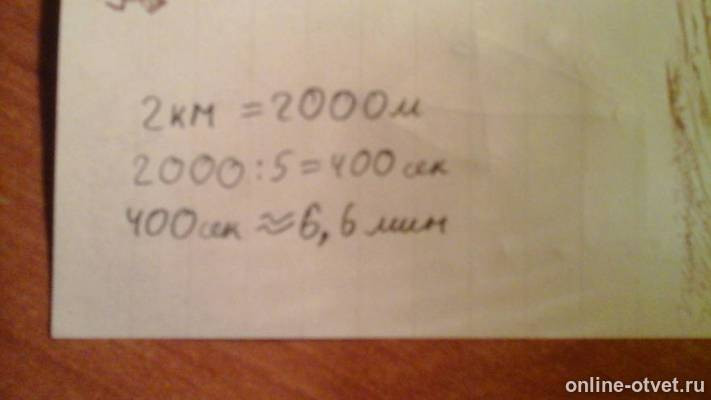 2км = 2000м
2000:5=400 сек
400сек ≈ 6,6 мин
online-otvet.ru